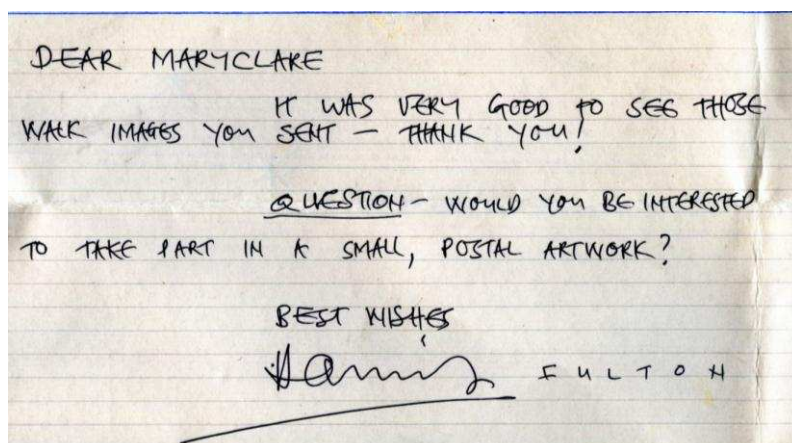 DEAR MARYCLARE
IT WAS VERY GOOD TO SEE THOSE
WALK IMAGES YOU SENT – THANK YOU!
QUESTION – WOULD YOU BE INTERESTED
TO TAKE PART IN A SMALL, POSTAL ARTWORK?
BEST WISHES
Hamish FULTON